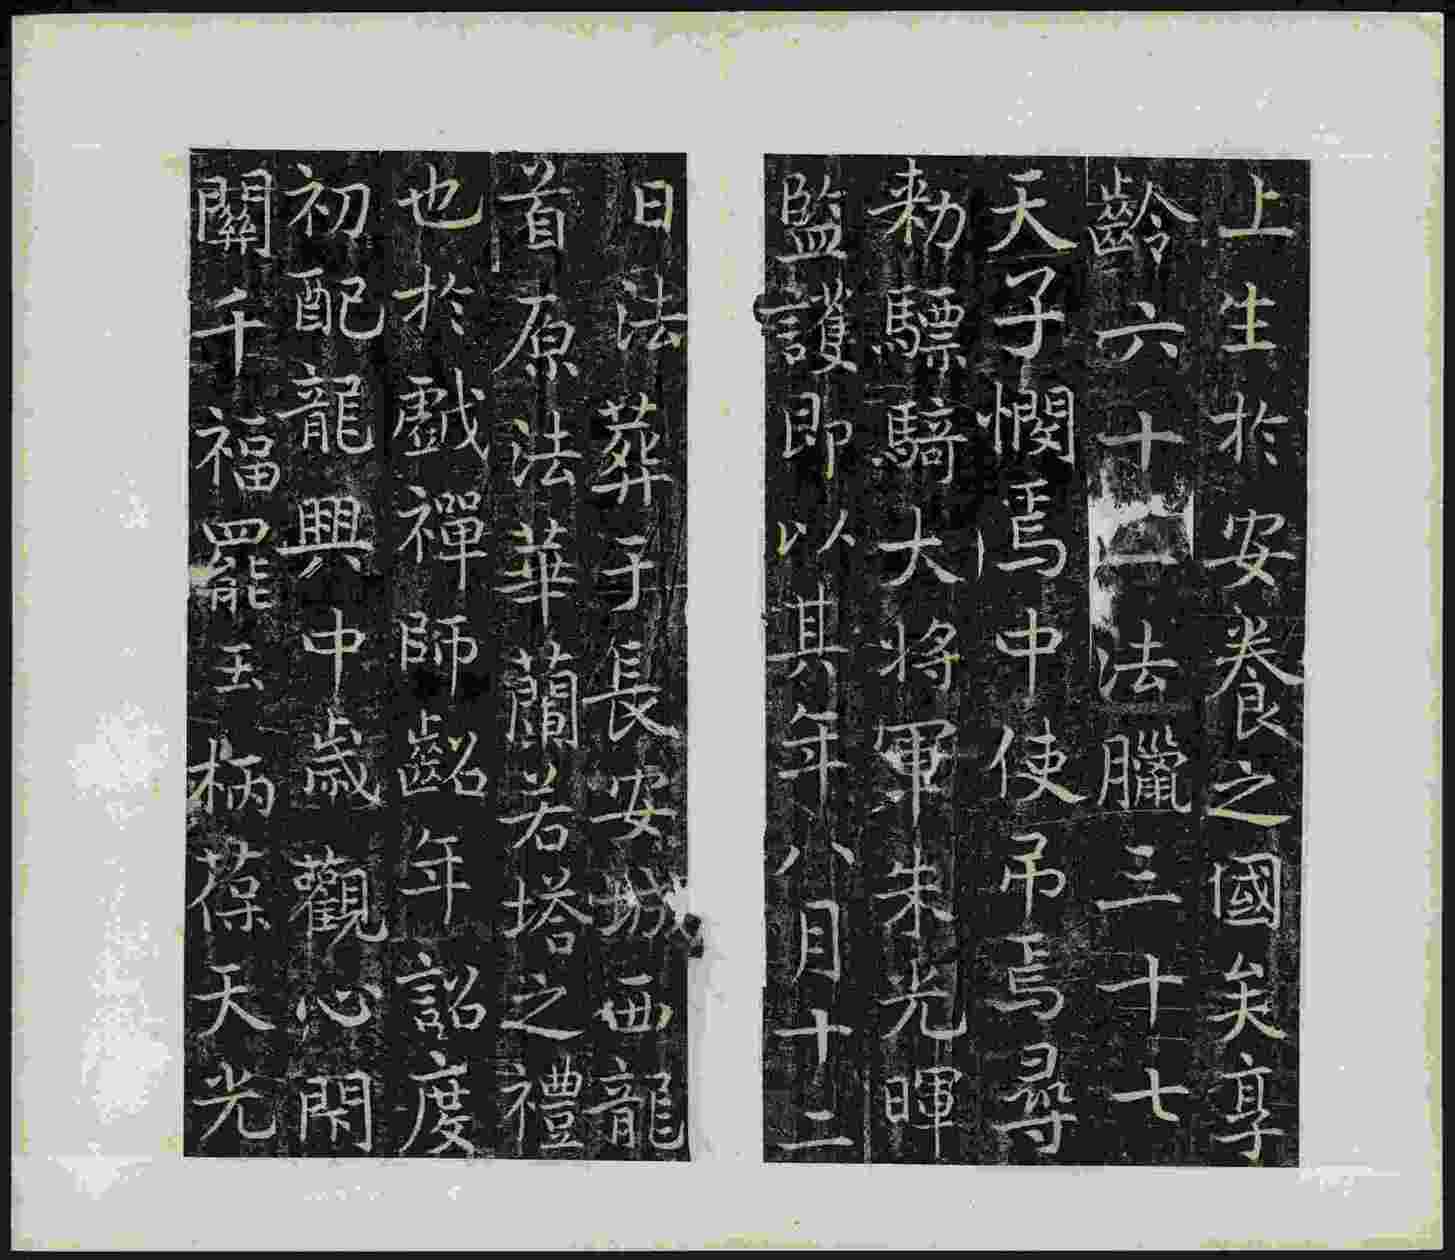 上生於安養之國矣享
齡六十二法臘三十七
天子憫焉中使吊焉尋
勑驃騎大將軍朱光暉
監護即以其年八月十二
日法葬于長安城西龍
首原法華蘭若塔之禮
也於戲禪師齠年詔度
初配龍興中歲觀心閑
關千福罷玉柄葆天光